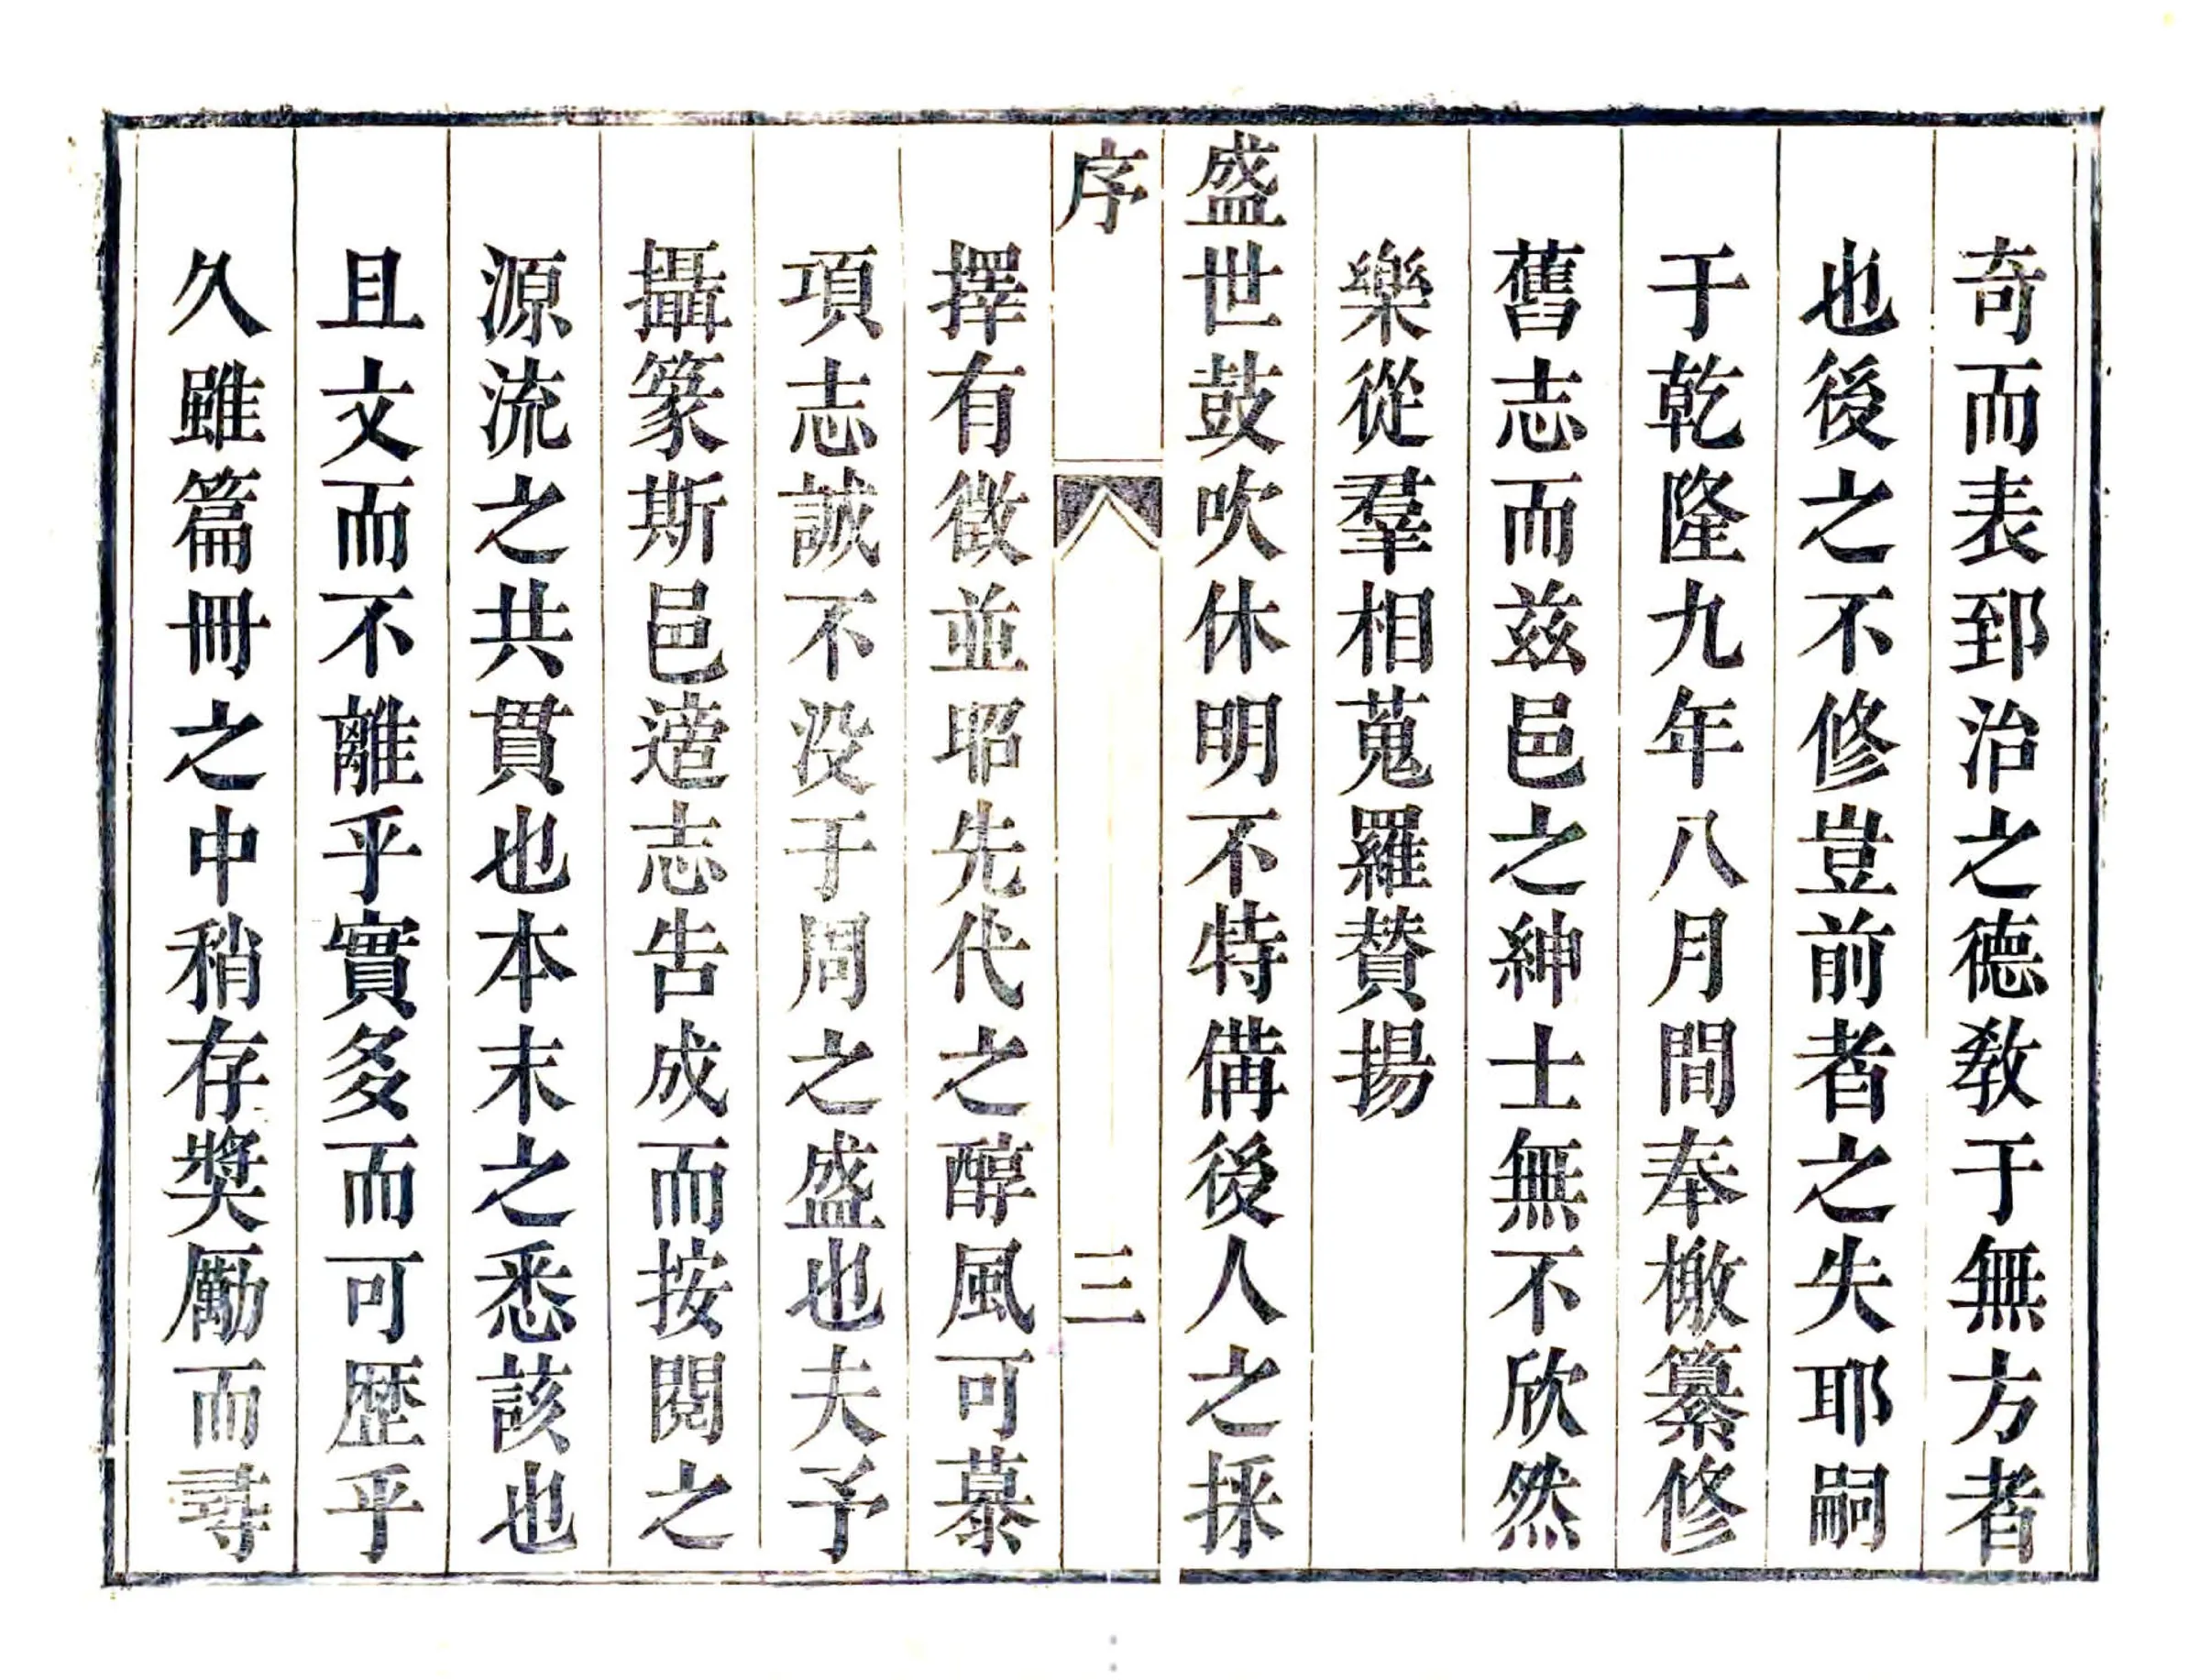 奇而表郅治之德敎于無方者
也後之不修豈前者之失耶嗣
于乾隆九年八月間奉檄纂修
舊志而茲邑之紳士無不欣然
樂從羣相蒐羅賛揚
盛世鼓吹休明不特備後人之採
序
三
擇有徵並昭先代之醇風可慕
項志誠不没于周之盛也夫予
攝篆斯邑適志告成而按閱之
源流之共貫也本末之悉該也
且文而不離乎實多而可歷乎
久雖篇冊之中稍存奬勵而尋